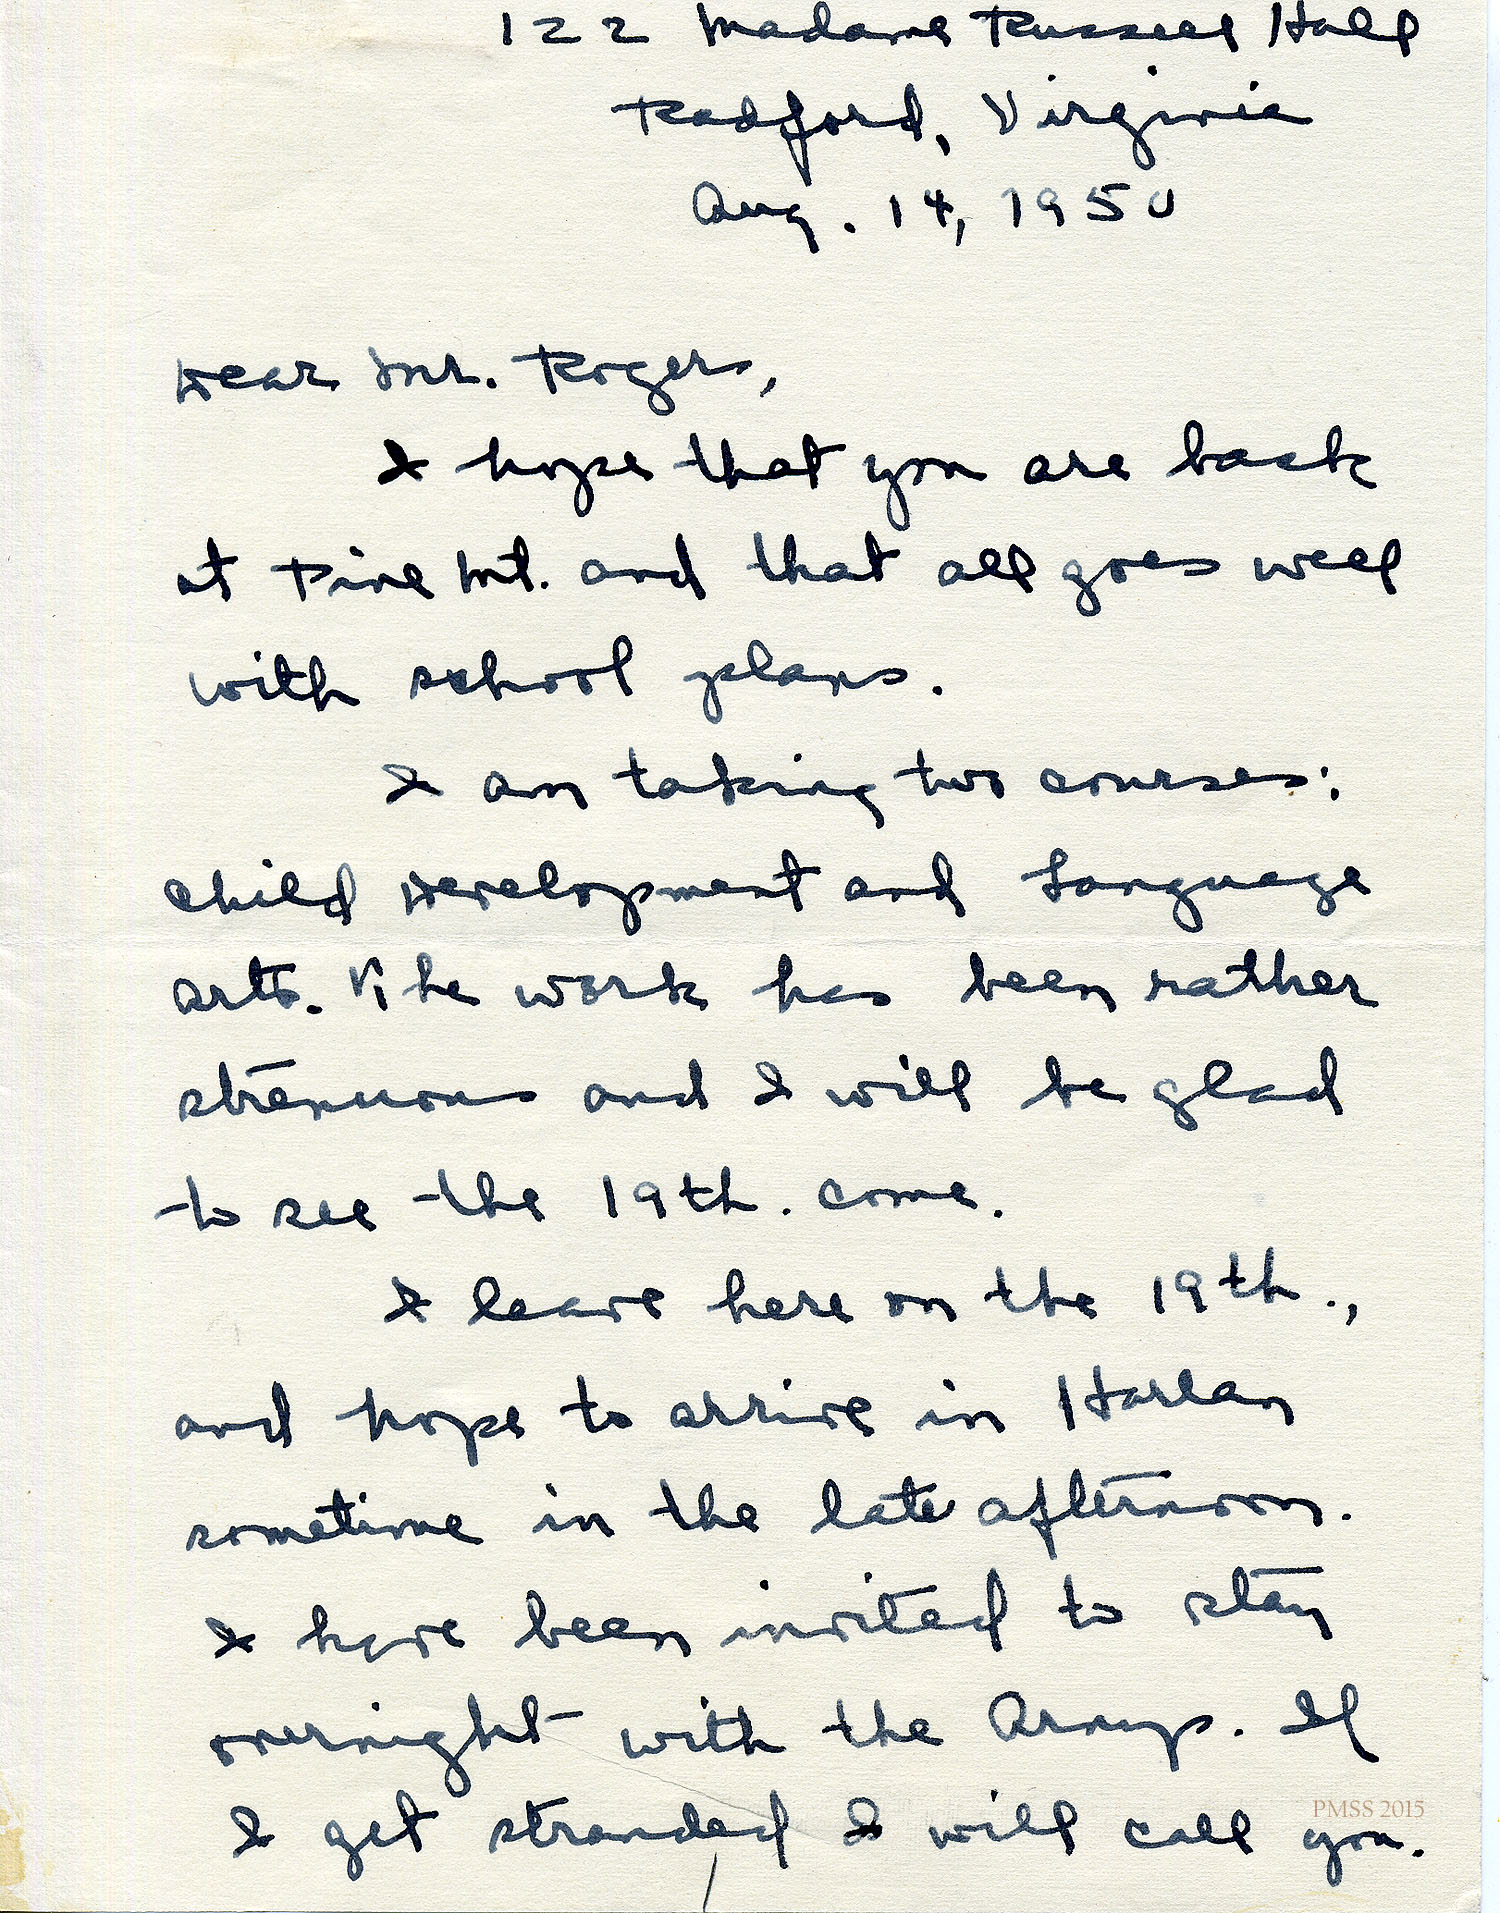 122 Madame Russell Hall
Radford, Virginia
Aug. 14, 1950
Dear Mr. Rogers,
I hope that you are back
at Pine Mt. and that all goes well
with school plans.
I am taking two courses:
Child Development and Language
Arts. The work has been rather
strenuous and I will be glad
to see the 19th. come.
I leave here on the 19th.,
and hope to arrive in Harlan
sometime in the late afternoon.
I have been invited to stay
overnight with the
. If
I get stranded I will call you.
PMSS 2015